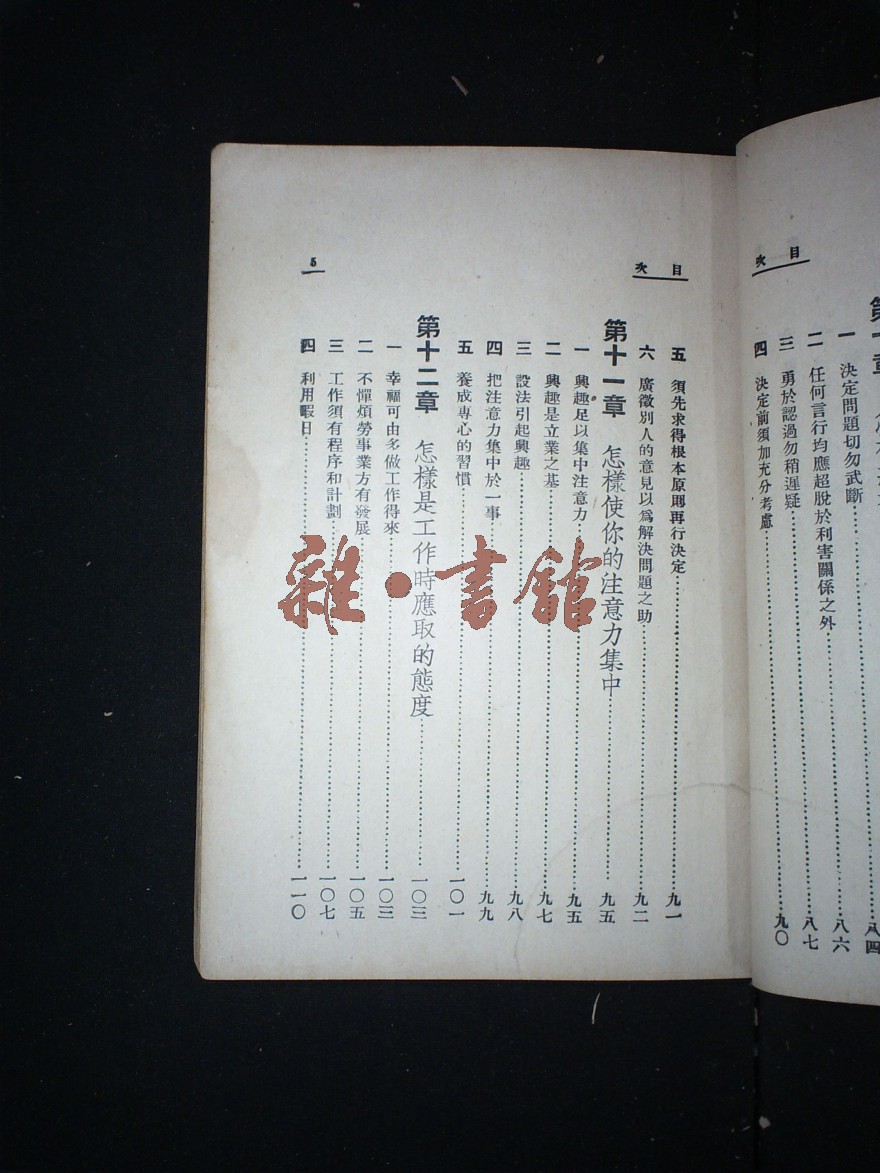 目次
一 決定問題切勿武斷……八六
二 任何言行均應超脫於利害關係之外……八七
三 勇於認過勿稍遲疑
四 決定前須加充分考慮……九〇
目次
五 須先求得根本原則再行決定……九一
六 廣徵別人的意見以爲解決問題之助……九二
第十一章 怎樣使你的注意力集中……九五
一 興趣足以集中注意力……九五
二 興趣是立業之基……九七
三 設法引起興趣……九八
四 把注意力集中於一事……九九
五 養成專心的習慣……一〇一
第十二章 怎樣是工作時應取的態度……一〇三
一 幸福可由多做工作得來……一〇三
二 不憚煩勞事業方有發展……一〇五
三 工作須有程序和計劃……一〇七
四 利用暇日……一一〇
5
雜·書館